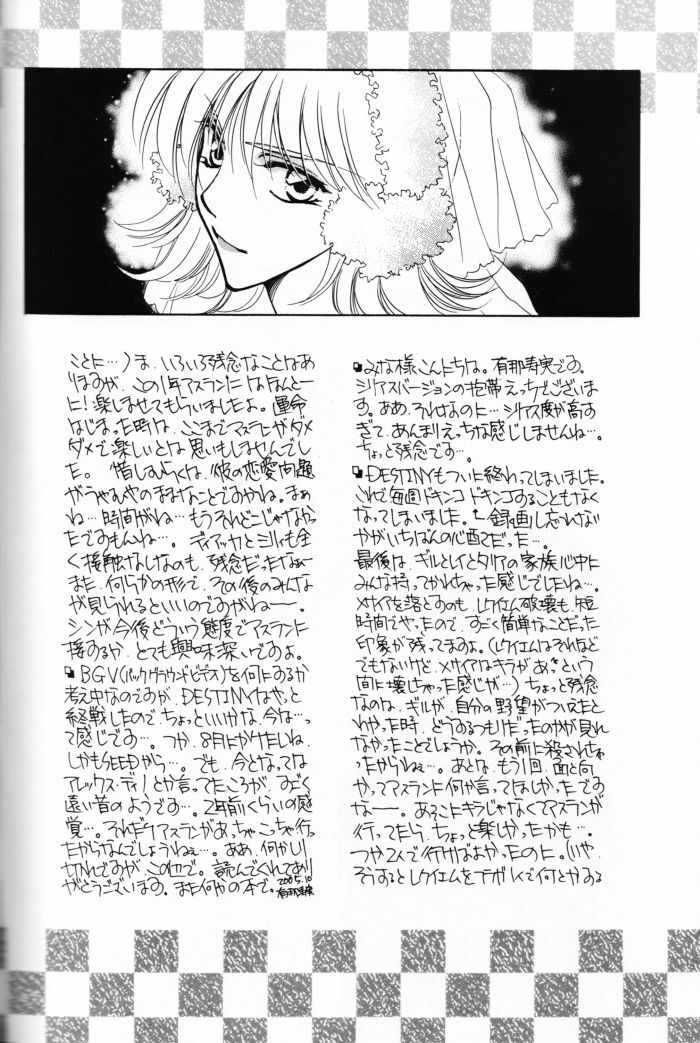 ■みな様こんにちは。有那寿実です。
シリアスバージョンの携帯えっちでございま
す。ああ、それなのに…シリアス度が高す
ぎて、あんまりえっちな感じしませんね…。
ちょっと残念です…。
■DESTINYもついに終わってしまいました。
これで毎週ドキンコドキンコすることもなく
なってしまいました。←録画し忘れない
かがいちばんの心配だった…。
最後は、ギルとレイとタリアの家族心中に
みんな持ってかれちゃった感じでしたね…。
メサイアを落とすのも、レクイエム破壊も、短
時間でやったので、すごく簡単なことだった
印象が残ってますよ。(レクイエムはそれほど
でもないけど、メサイアはキラがあっという
間に壊しちゃった感じが…)ちょっと残念
なのは、ギルが、自分の野望がついえたと
わかった時、どうするつもりだったのかが見れ
なかったことでしょうか。その前に殺されちゃ
ったからねぇ…。あとは、もう1回、面と向
かってアスランに何か言ってほしかったです
なー。あそこにキラじゃなくてアスランが
行ってたら、ちょっと楽しかったかも…。
つか2人で行けばよかったのに。(いや、
そうするとレクイエムをゴールドで何とかする
ことに…)ま、いろいろ残念なことはあ
りますが、この1年アスランにはほんとー
に!楽しませてもらいましたよ。運命
はじまった時は、ここまでアスランがダメ
ダメで楽しいとは思いもしませんでし
た。惜しむらくは、彼の恋愛問題
がうやむやのままなことですかね。まぁ
ね…時間がね…もうそれどこじゃなかっ
たですもんね…。ディアッカとミリィも全
く接触なしなのも、残念だったなぁー
また、何らかの形で、その後のみんな
が見られるといいのですがねー。
シンが今後どういう態度でアスランに
接するか、とても興味深いですよ。
■BGV(バックグラウンドビデオ)を何にするか
考え中なのですが、DESTINYはやっと
終戦したのでちょっといいかな、今は…っ
て感じです…。つか、8月にかけたいね、
しかもSEEDから…。でも、今となっては
アレックス・ディノとか言ってたころが、すごく
遠い昔のようです…。2年前くらいの感
覚…。それだけアスランがあっちゃこっちゃ行っ
たからなんでしょうねぇ…。ああ、何かしり
切れですが、この辺で。読んでくれてあり
がとうございます。また何かの本で。2005.10
有那寿実